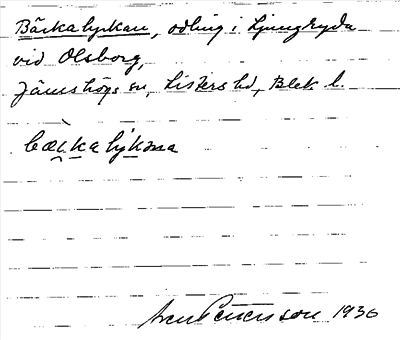 Bäckalyckan, odling i Ljungryda
vid Olsborg,
Jämshögs sn, Listers hd, Blek. l.
bæ̀kalýkəna
Sven Petersson 1936